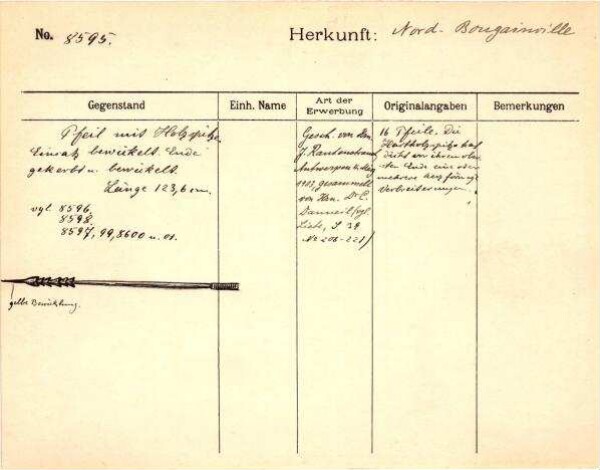 No. 8595.
Herkunft: Nord-Bougainville
Gegenstand
Einh. Name
Art der Erwerbung
Originalangaben
Bemerkungen
Pfeil mit Holzspitze
Einsatz bewickelt. Ende
gekerbt u. bewickelt.
Länge 123,6 cm.
vgl. 8596
8598.
8597, 99, 8600 u. 01.
gelbe Bewicklung.
Gesch. von den
Antwerpen
gesammelt
von Hrn. Dr. E.
Danneil (vgl.
Liste, S. 39
No 206-221)
16 Pfeile. Die
Hartholzspitze hat
dicht vor ihrem
Ende eine oder
mehrere herzförmige
Verbreiterungen.